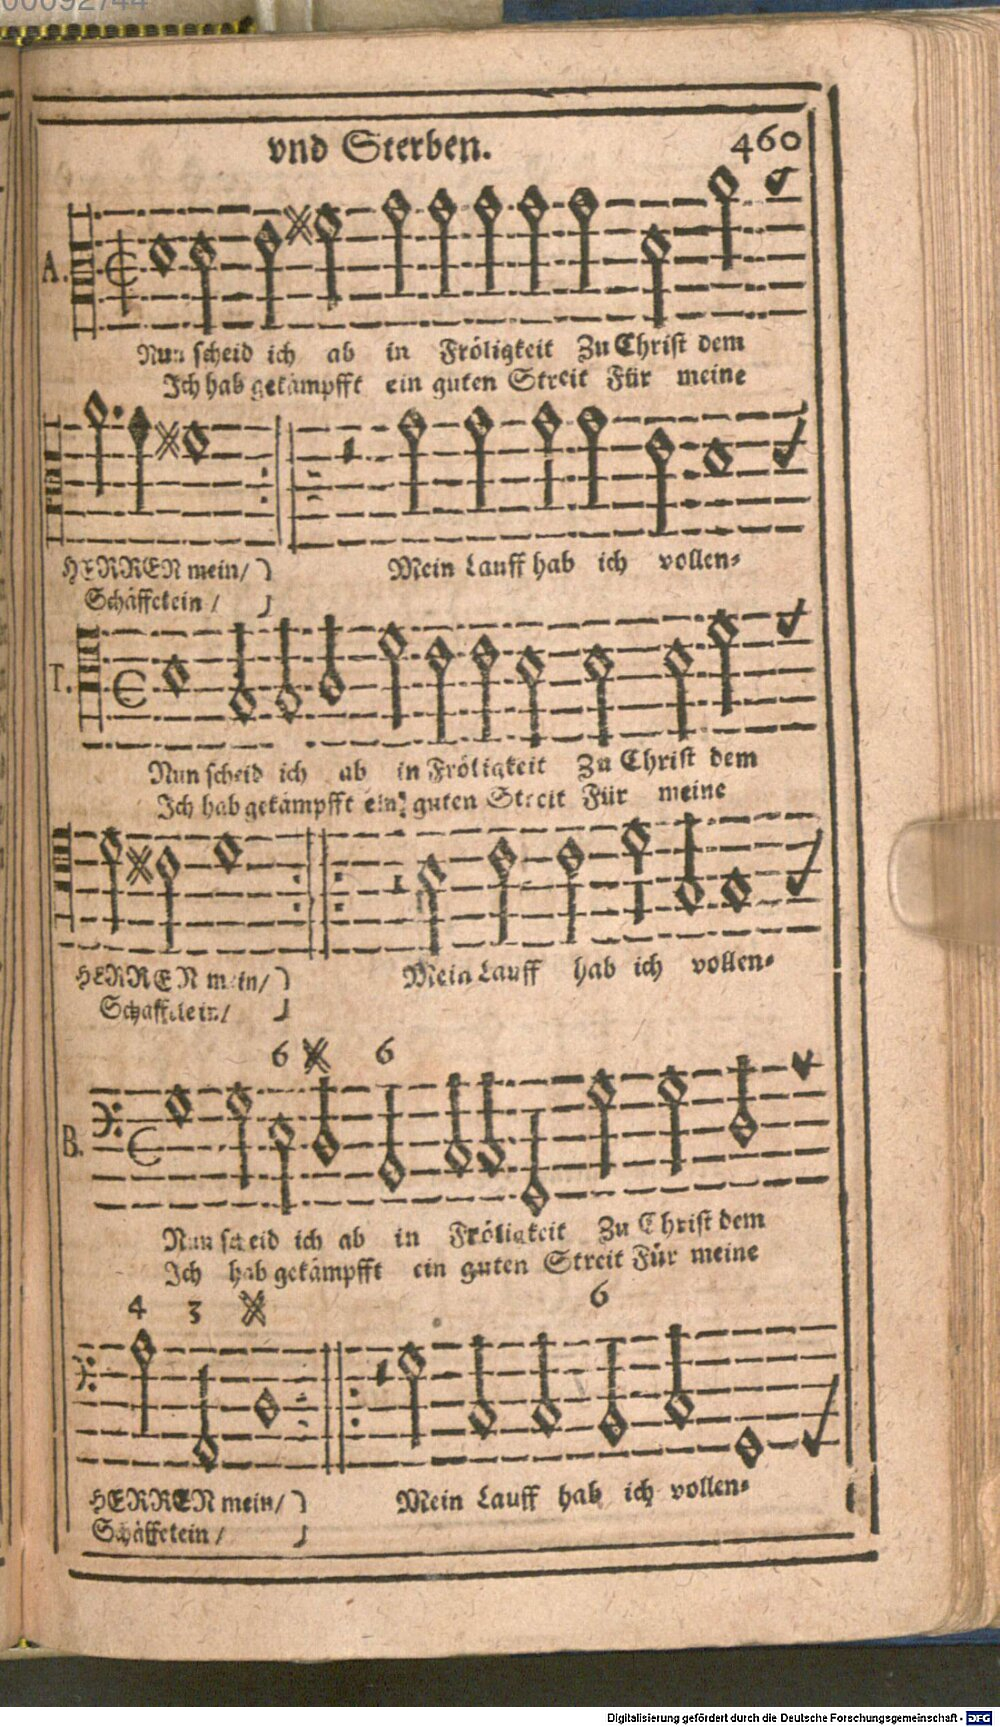 00092744
vnd Sterben. 460
A.
Nun scheid ich ab in Fröligkeit Zu Christ dem
Ich hab gekämpfft ein guten Streit Für meine
HERREN mein/ }
Schäffelein/ }
Mein Lauff hab ich vollen-
T.
Nun scheid ich ab in Fröligkeit Zu Christ dem
Ich hab gekämpfft ein guten Streit Für meine
HERREN mein/ }
Schäffelein/ }
Mein Lauff hab ich vollen-
6 6
B.
Nun scheid ich ab in Fröligkeit Zu Christ dem
Ich hab gekämpfft ein guten Streit Für meine
4 3 6
HERREN mein/ }
Schäffelein/ }
Mein Lauff hab ich vollen-
Digitalisierung gefördert durch die Deutsche Forschungsgemeinschaft - DFG